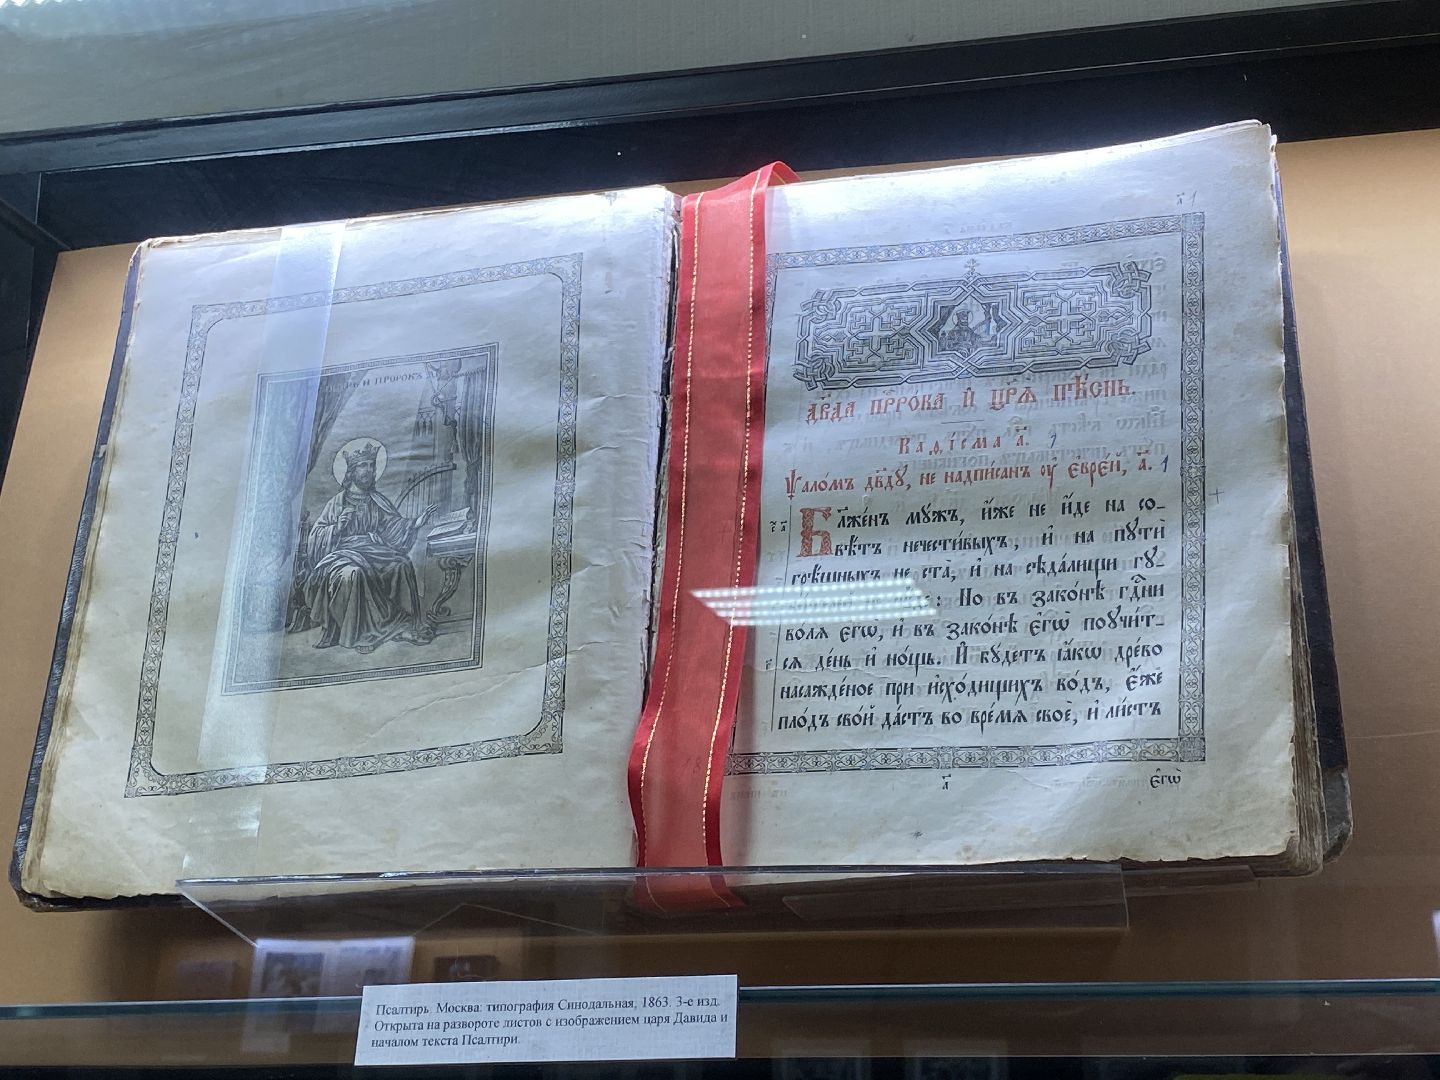 И ПРОРОКЪ
а҃ 1
Дв҃да прⷪ҇рока и҆ цр҃ѧ̀ пѣ́снь.
Каѳі́сма а҃.
Ѱало́мъ дв҃дꙋ, не надпи́санъ ᲂу҆ є҆врє́й, а҃. 1
Бл҃же́нъ мꙋ́жъ, и҆́же не и҆́де на со-
вѣ́тъ нечести́выхъ, и҆ на пꙋтѝ
грѣ́шныхъ не ста̀, и҆ на сѣда́лищи гꙋ-
: Но въ зако́нѣ гдⷭ҇ни
во́лѧ є҆гѡ̀, и҆ въ зако́нѣ є҆гѡ̀ поꙋчи́т-
сѧ де́нь и҆ но́щь. И҆ бꙋ́детъ ꙗ҆́кѡ дре́во
насажде́ное при и҆схо́дищихъ во́дъ, є҆́же
пло́дъ сво́й да́стъ во вре́мѧ своѐ, и҆ ли́стъ
а҃
є҆гѡ̀
Псалтирь. Москва: типография Синодальная, 1863. 3-е изд.
Открыта на развороте листов с изображением царя Давида и
началом текста Псалтири.